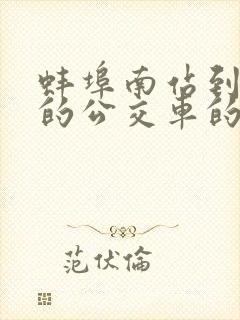 蚌埠南佔到
的公交車的
范伏倫